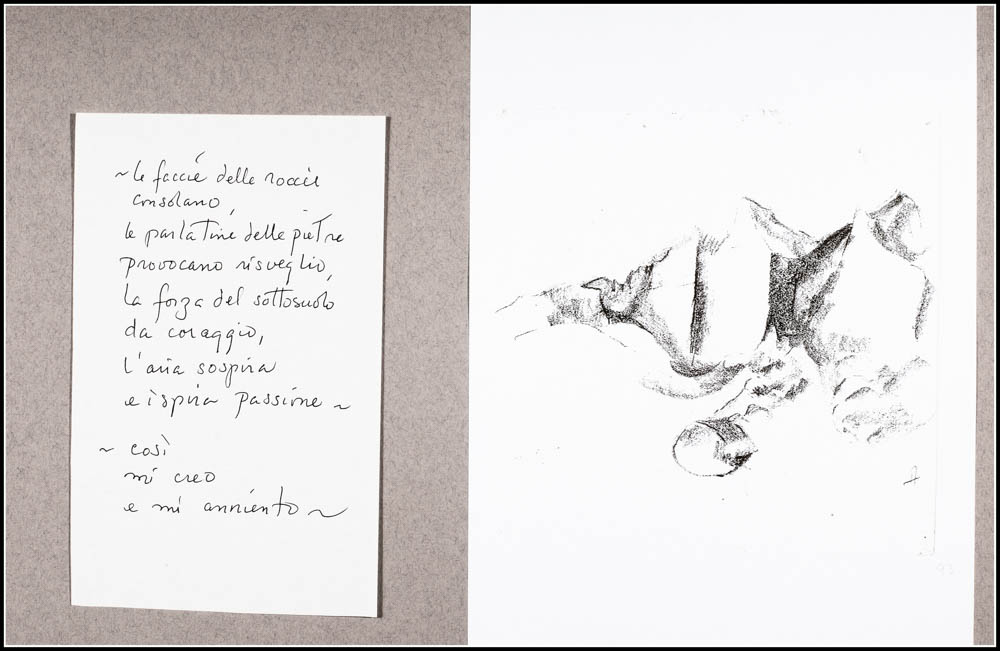 ~ le faccie delle roccie
consolano,
le parlatine delle pietre
provocano risveglio,
la forza del sottosuolo
da coraggio,
l'aria sospira
e ispira passione ~
~ così
mi creo
e mi anniento ~